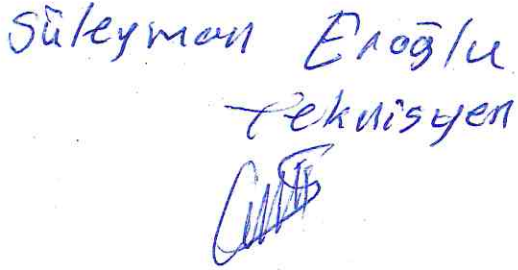 Süleyman Eroğlu
Teknisyen